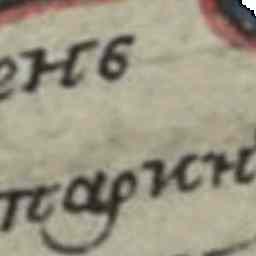 ень
парин